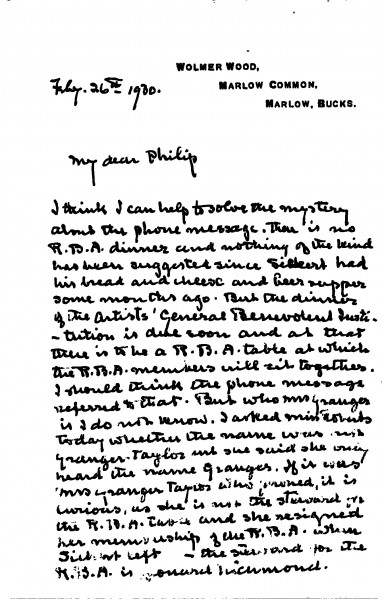 WOLMER WOOD,
MARLOW COMMON,
MARLOW, BUCKS.
Feby. 26th 1930.
My dear Philip
I think I can help to solve the mystery
about the phone message. There is no
R.B.A. dinner and nothing of the kind
has been suggested since Sickert had
his bread and cheese and beer supper
some months ago. But the dinner
of the Artists' General Benevolent Insti-
-tution is due soon and at that
there is to be a R.B.A. table at which
the R.B.A. members will sit together.
I should think the phone message
referred to that. But who Mrs Granger
is I do not know. I asked Miss
today whether the name was
Granger-Taylor but she said she only
heard the name Granger. If it was
Mrs Granger Taylor who phoned, it is
curious, as she is not the steward for
the R.B.A. table and she resigned
her membership of the R.B.A. when
Sickert left - the steward for the
R.B.A. is Leonard Richmond.